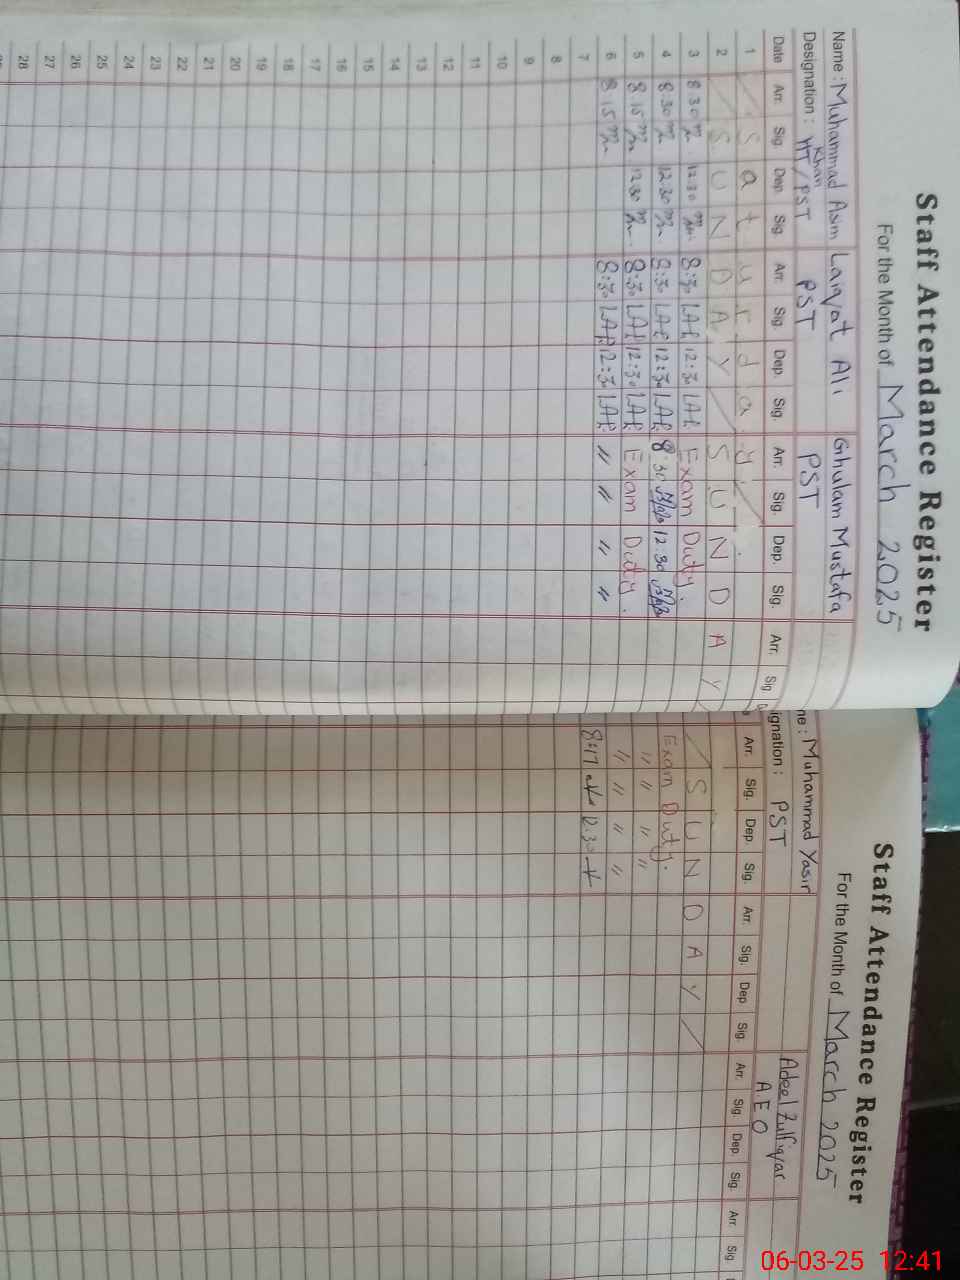 Staff Attendance Register
For the Month of March 2025
Name : Muhammad Asim Khan Laiqat Ali Ghulam Mustafa
Designation : HT/PST PST PST
Date Arr. Sig. Dep. Sig. Arr. Sig. Dep. Sig. Arr. Sig. Dep. Sig. Arr. Sig
1 S a t u r d a y
2 S U N D A Y S U N D A Y
3 8 30 12 30 8:30 LAk 12:30 LAk Exam Duty.
4 8 30 12 30 8:30 LAk 12:30 LAk 8:30 12:30
5 8 15 12 30 8:30 LAk 12:30 LAk Exam Duty.
6 8 15 8:30 LAk 12:30 LAk " " " "
7
8
9
10
11
12
13
14
15
16
17
18
19
20
21
22
23
24
25
26
27
28
Staff Attendance Register
For the Month of March 2025
ne : Muhammad Yasir Adeel Zulfiqar
ignation : PST AEO
Arr. Sig. Dep. Sig. Arr. Sig. Dep Sig. Arr. Sig. Dep. Sig. Arr. Sig
S U N D A Y
Exam Duty.
" " " "
" " " "
8:17 12.30
06-03-25 12:41